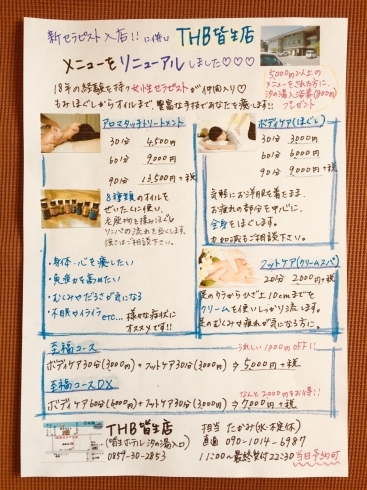 新セラピスト入店!!に伴い THB皆生店
メニューをリニューアルしました♡♡♡
5,000円以上の
メニューをされた方に、
汐の湯入浴券(800円)
プレゼント
18年の経験を持つ女性セラピストが仲間入り♡
もみほぐしからオイルまで豊富な手技であなたを癒します!!
アロマタッチトリートメント
30分 4,500円
60分 9,000円
90分 13,500円+税
8種類のオイルを
ぜいたくに使い、
老廃物を揉みほぐし
リンパの流れを良くします。
強さはご相談下さい。
・身体・心を癒したい
・免疫力を高めたい
・むくみやだるさが気になる
・不眠やイライラ etc... 様々な症状に
オススメです!!
ボディケア(ほぐし)
30分 3,000円
60分 6,000円
90分 9,000円+税
気軽にお洋服を着たまま、
お疲れの部分を中心に、
全身をほぐします。
力加減もご相談下さい。
フットケア(クリームスパ)
20分 2,000円+税
足のウラからひざ上10cmまでを
クリームを使いしっかり流します。
足のむくみや疲れが気になる方に。
至福コース うれしい1000円OFF!!
ボディケア30分(3,000円)+フットケア30分(3,000円)⇒5,000円+税
至福コースDX なんと2,000円もお得!!
ボディケア60分(6,000円)+フットケア30分(3,000円)⇒7,000円+税
THB皆生店
(皆生ホテル汐の湯入口)
0859-30-2853
担当 たかみ(水・木定休)
直通 090-1014-6987
11:00~最終受付22:30 当日予約可